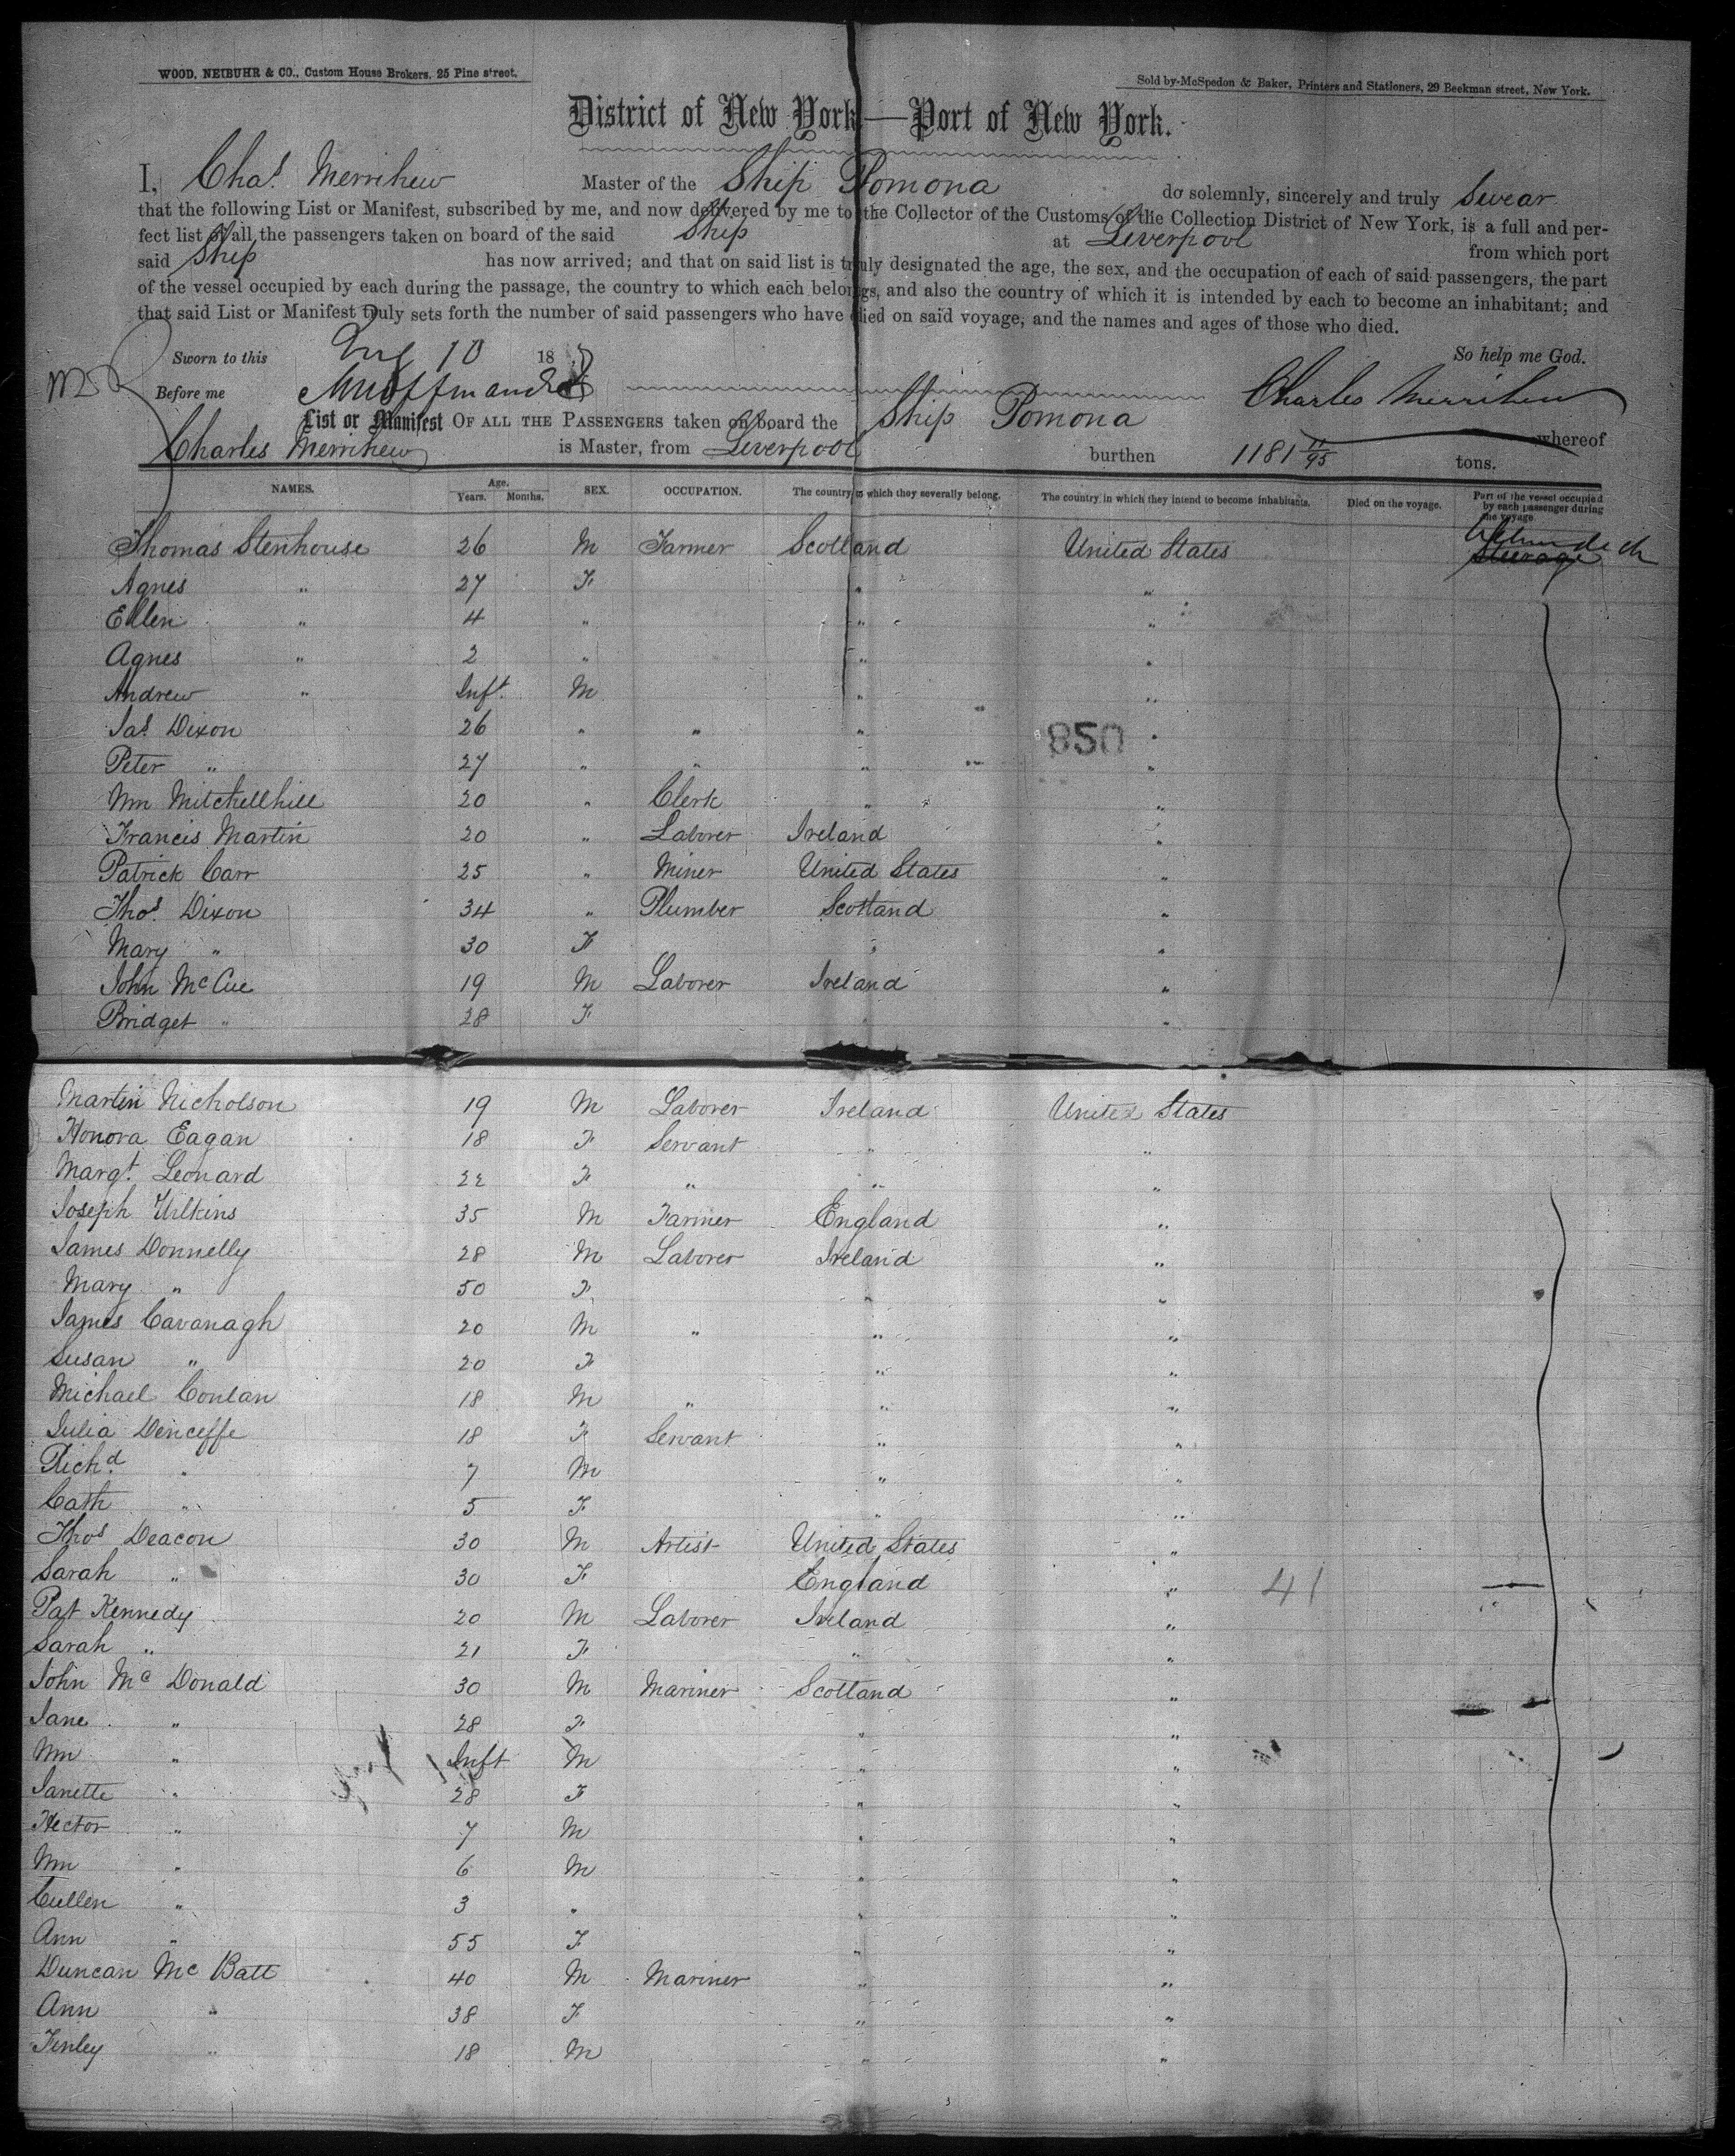 WOOD, NEIBUHR & CO., Custom House Brokers, 25 Pine street.
Sold by McSpedon & Baker, Printers and Stationers, 29 Beekman street, New York.
District of New York—Port of New York.
I, Chas. Merrihew Master of the Ship Pomona do solemnly, sincerely and truly Swear
that the following List or Manifest, subscribed by me, and now delivered by me to the Collector of the Customs of the Collection District of New York, is a full and per-
fect list of all the passengers taken on board of the said Ship at Liverpool from which port
said Ship has now arrived; and that on said list is truly designated the age, the sex, and the occupation of each of said passengers, the part
of the vessel occupied by each during the passage, the country to which each belongs, and also the country of which it is intended by each to become an inhabitant; and
that said List or Manifest truly sets forth the number of said passengers who have died on said voyage, and the names and ages of those who died.
Sworn to this Aug 10 18 So help me God.
Before me Charles Merrihew
List or Manifest OF ALL THE PASSENGERS taken on board the Ship Pomona whereof
Charles Merrihew is Master, from Liverpool burthen 1181 11/95 tons.
NAMES. Age. Years. Months. SEX. OCCUPATION. The country to which they severally belong. The country in which they intend to become inhabitants. Died on the voyage. Part of the vessel occupied by each passenger during the voyage
Thomas Stenhouse 26 M Farmer Scotland United States Steerage
Agnes " 27 F " "
Ellen " 4 " " "
Agnes " 2 " " "
Andrew " Inft. M " "
Jas Dixon 26 " " " "
850
Peter " 27 " " " "
Wm Mitchellhill 20 " Clerk " "
Francis Martin 20 " Laborer Ireland "
Patrick Carr 25 " Miner United States "
Thos. Dixon 34 " Plumber Scotland "
Mary " 30 F " "
John McCue 19 M Laborer Ireland "
Bridget " 28 F " "
Martin Nicholson 19 M Laborer Ireland United States
Honora Eagan 18 F Servant " "
Margt. Leonard 22 F " " "
Joseph Wilkins 35 M Farmer England "
James Donnelly 28 M Laborer Ireland "
Mary " 50 F " "
James Cavanagh 20 M " " "
Susan " 20 F " "
Michael Conlan 18 M " " "
Julia Denceffe 18 F Servant " "
Richd. " 7 M " "
Cath " 5 F " "
Thos Deacon 30 M Artist United States "
Sarah " 30 F England " 41
Pat Kennedy 20 M Laborer Ireland "
Sarah " 21 F " "
John McDonald 30 M Mariner Scotland "
Jane " 28 F " "
Wm " Inft M " "
Janette " 28 F " "
Hector " 7 M " "
Wm " 6 M " "
Cullen " 3 " " "
Ann " 55 F " "
Duncan Mc Batt 40 M Mariner " "
Ann " 38 F " "
Finley " 18 M " "